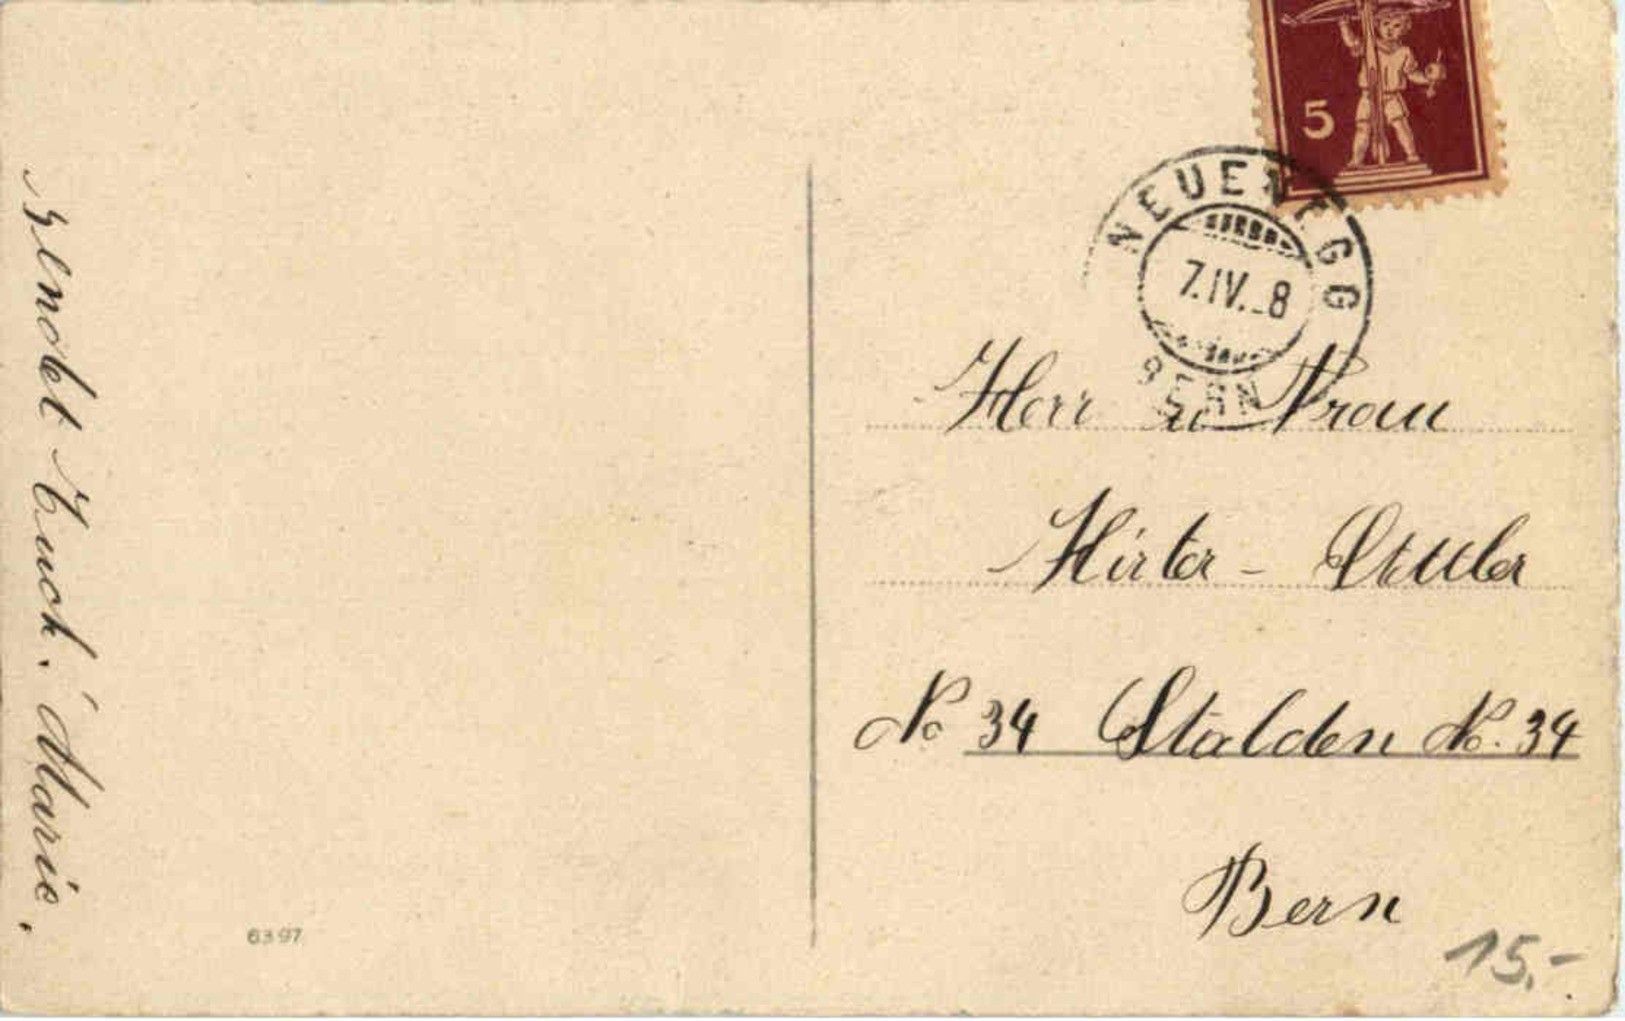 5
NEUENEGG
7.IV._8
BERN
Herr u Frau
Hirter - Stettler
No 34 Stalden No. 34
Bern
15.-
sendet Euch. Marie.
6397